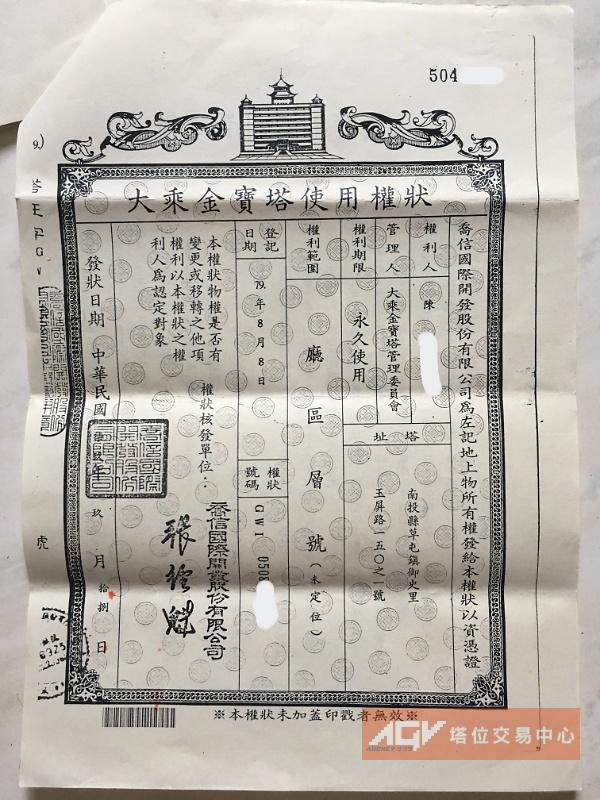 504
大乘金寶塔使用權狀
喬信國際開發股份有限公司為左記地上物所有權發給本權狀以資憑證
權利人 陳
管理人 大乘金寶塔管理委員會
塔址 南投縣草屯鎮御史里
玉屏路一五〇之一號
權利期限 永久使用
權利範圍 廳區層號(未定位)
登記日期 79年8月8日
權狀號碼 GWI 0508
本權狀物權是否有
變更或移轉之他項
權利以本權狀之權
利人為認定對象
權狀核發單位：
喬信國際開發股份有限公司
張
發狀日期 中華民國
玖月拾捌日
虎
※本權狀未加蓋印戳者無效※
AGV 塔位交易中心